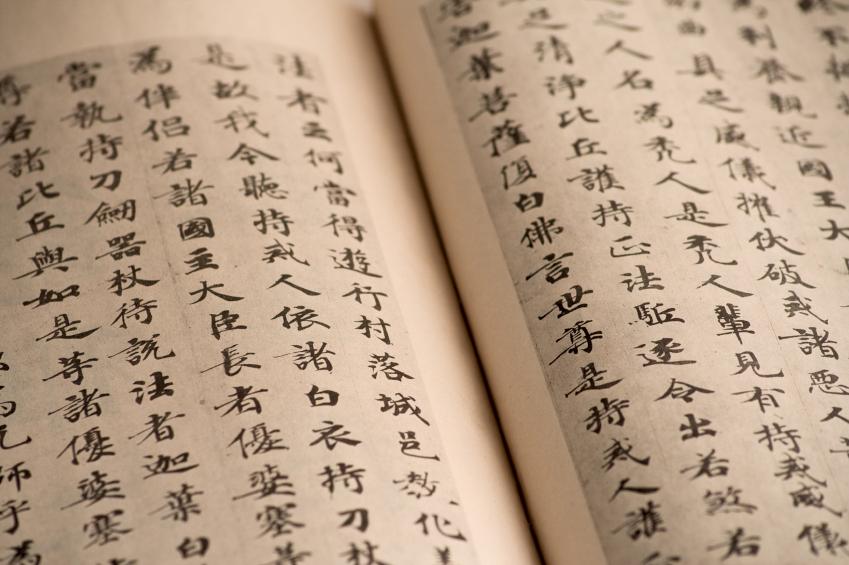 利養親近國王大
曲具足威儀摧伏破戒諸惡人
之人名為禿人是禿人輩見有持戒威儀
足清淨比丘護持正法駈逐令出若煞若
迦葉菩薩復白佛言世尊是持戒人護
法者云何當得遊行村落城邑教化
是故我今聽持戒人依諸白衣持刀杖
為伴侶若諸國主大臣長者優婆塞等
當執持刀劒器杖待說法者迦葉白
尊若諸比丘與如是等諸優婆塞
師乎為